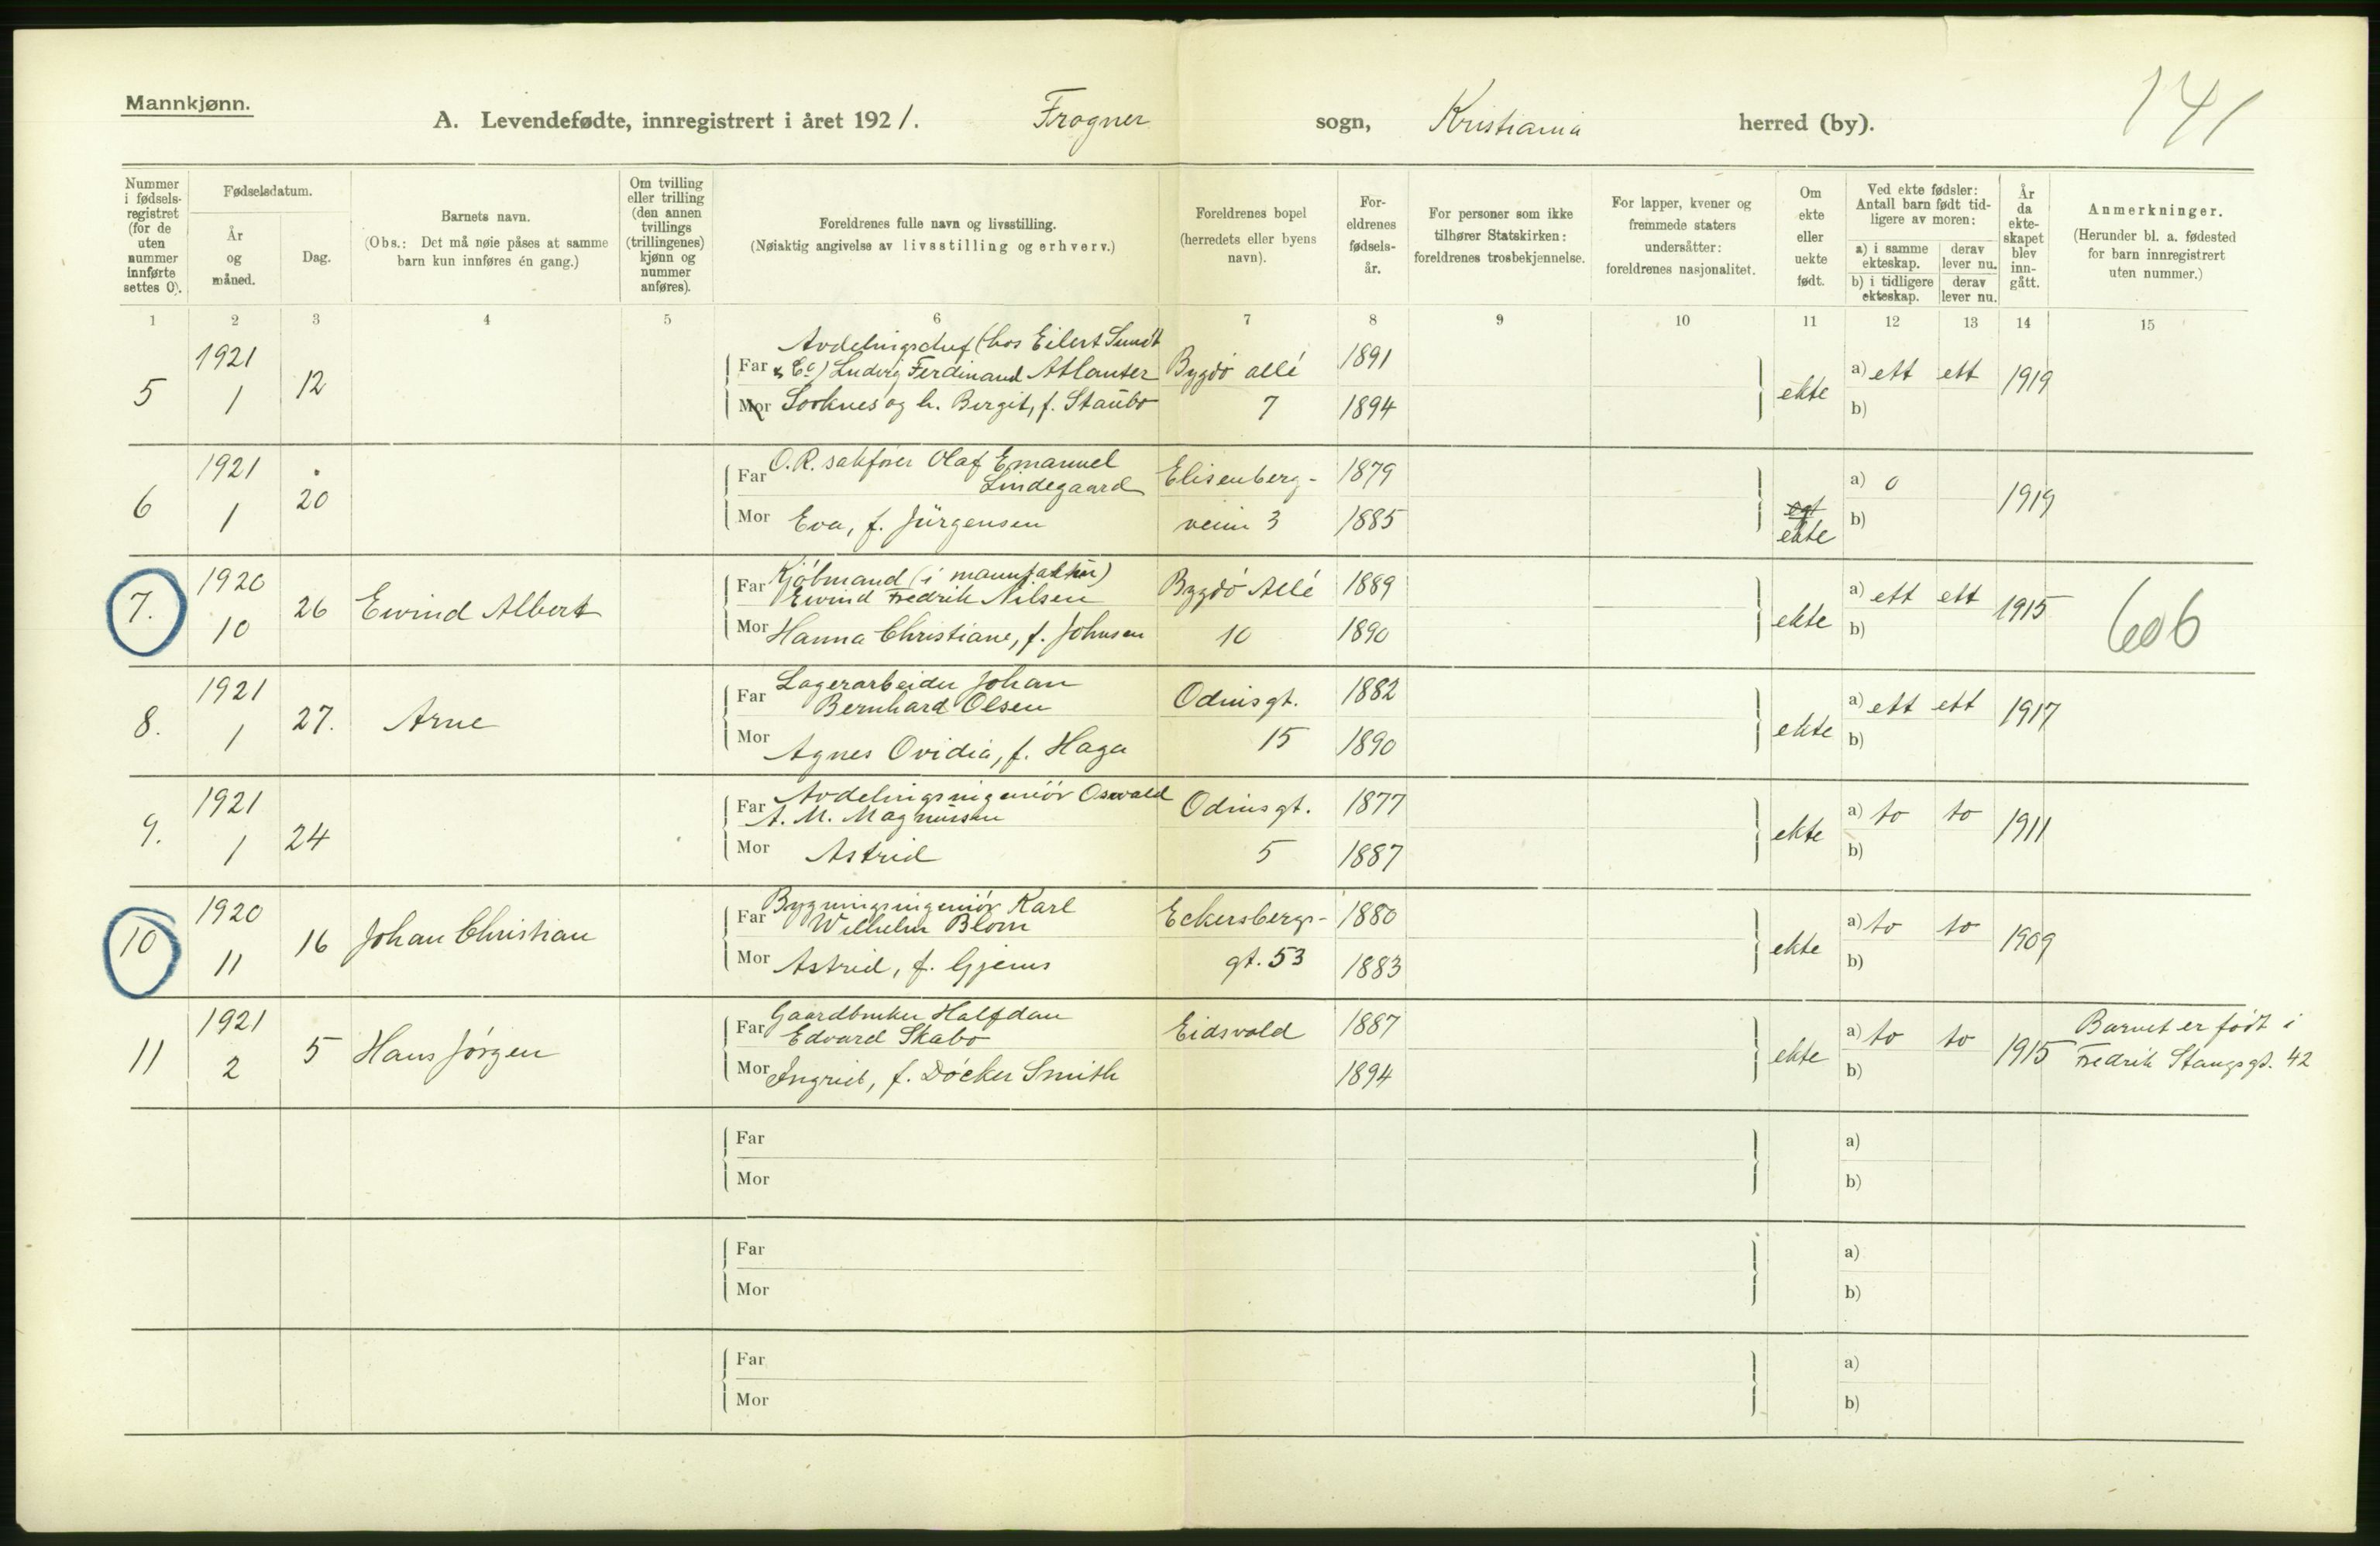 Mannkjønn.
A. Levendefødte, innregistrert i året 1921. Frogner sogn, Kristiania herred (by).
141
Nummer i fødsels-registret (for de uten nummer innførte settes 0).
Fødselsdatum.
År og måned.
Dag.
Barnets navn.
(Obs.: Det må nøie påses at samme barn kun innføres én gang.)
Om tvilling eller trilling (den annen tvillings (trillingenes) kjønn og nummer anføres).
Foreldrenes fulle navn og livsstilling.
(Nøiaktig angivelse av livsstilling og erhverv.)
Foreldrenes bopel (herredets eller byens navn).
For-eldrenes fødsels-år.
For personer som ikke tilhører Statskirken: foreldrenes trosbekjennelse.
For lapper, kvener og fremmede staters undersåtter: foreldrenes nasjonalitet.
Om ekte eller uekte født.
Ved ekte fødsler: Antall barn født tid-ligere av moren:
a) i samme ekteskap. derav lever nu.
b) i tidligere ekteskap. derav lever nu.
År da ekte-skapet blev inn-gått.
Anmerkninger.
(Herunder bl. a. fødested for barn innregistrert uten nummer.)
1 2 3 4 5 6 7 8 9 10 11 12 13 14 15
Avdelingschef (hos Eilert Sundt
1921 Far & Co) Ludvig Ferdinand Atlanter Bygdö allé 1891 a) ett ett
5 1 12 Mor Sorknes og h. Bergit, f. Staubo 7 1894 ekte b) 1919
1921 Far O.R. sakfører Olaf Emanuel Lindegaard Elisenberg- 1879 a) 0
6 1 20 Mor Eva, f. Jürgensen veien 3 1885 ekte b) 1919
1920 Far Kjöbmand (i manufaktur)
Eivind Fredrik Nilsen Bygdö Allé 1889 a) ett ett
7. 10 26 Eivind Albert Mor Hanna Christiane, f. Johnsen 10 1890 ekte b) 1915 606
1921 Far Lagerarbeider Johan
Bernhard Olsen Odinsgt. 1882 a) ett ett
8. 1 27. Arne Mor Agnes Ovidia, f. Haga 15 1890 ekte b) 1917
1921 Far Avdelingsingeniör Oswald
A. M. Magnussen Odinsgt. 1877 a) to to
9. 1 24 Mor Astrid 5 1887 ekte b) 1911
1920 Far Bygningsingeniör Karl
Wilhelm Blom Eckersbergs- 1880 a) to to
10 11 16 Johan Christian Mor Astrid, f. Gjems gt. 53 1883 ekte b) 1909
1921 Far Gaardbruker Halfdan
Edvard Skabo Eidsvold 1887 a) to to Barnet er födt i
11 2 5 Hans Jörgen Mor Ingrid, f. Döcker Smith 1894 ekte b) 1915 Fredrik Stangsgt. 42
Far a)
Mor b)
Far a)
Mor b)
Far a)
Mor b)